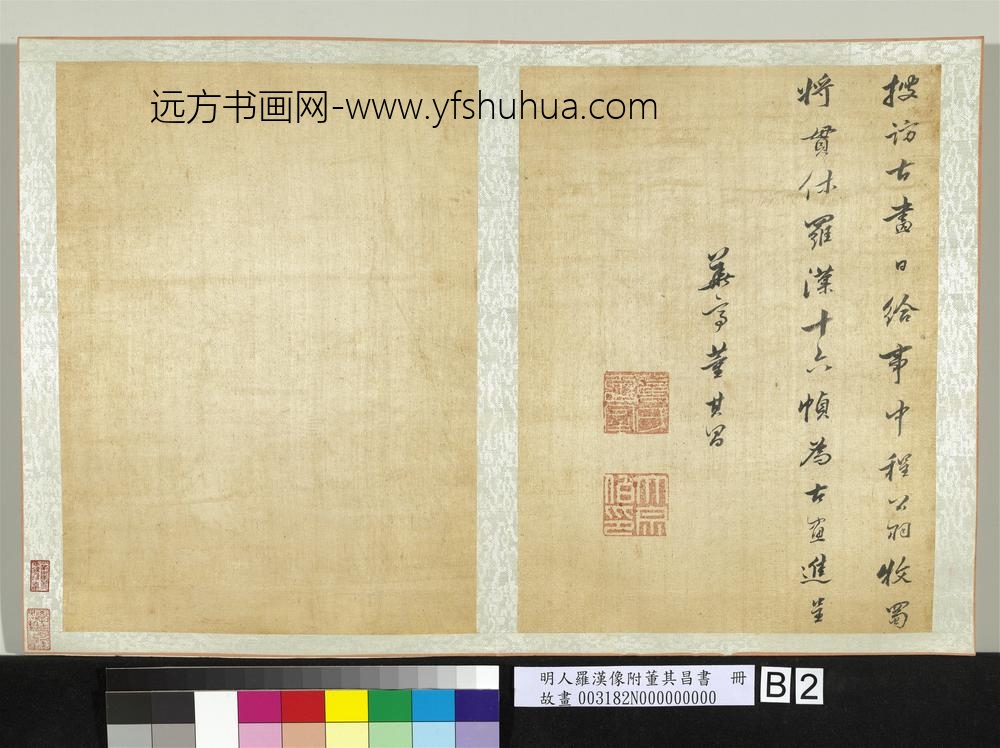 远方书画网-www.yfshuhua.com
搜访古畫日給事中程公羽牧蜀
將貫休羅漢十六幀為古畫進呈
華亭董其昌
明人羅漢像附董其昌書 冊
故畫 003182N000000000
B 2